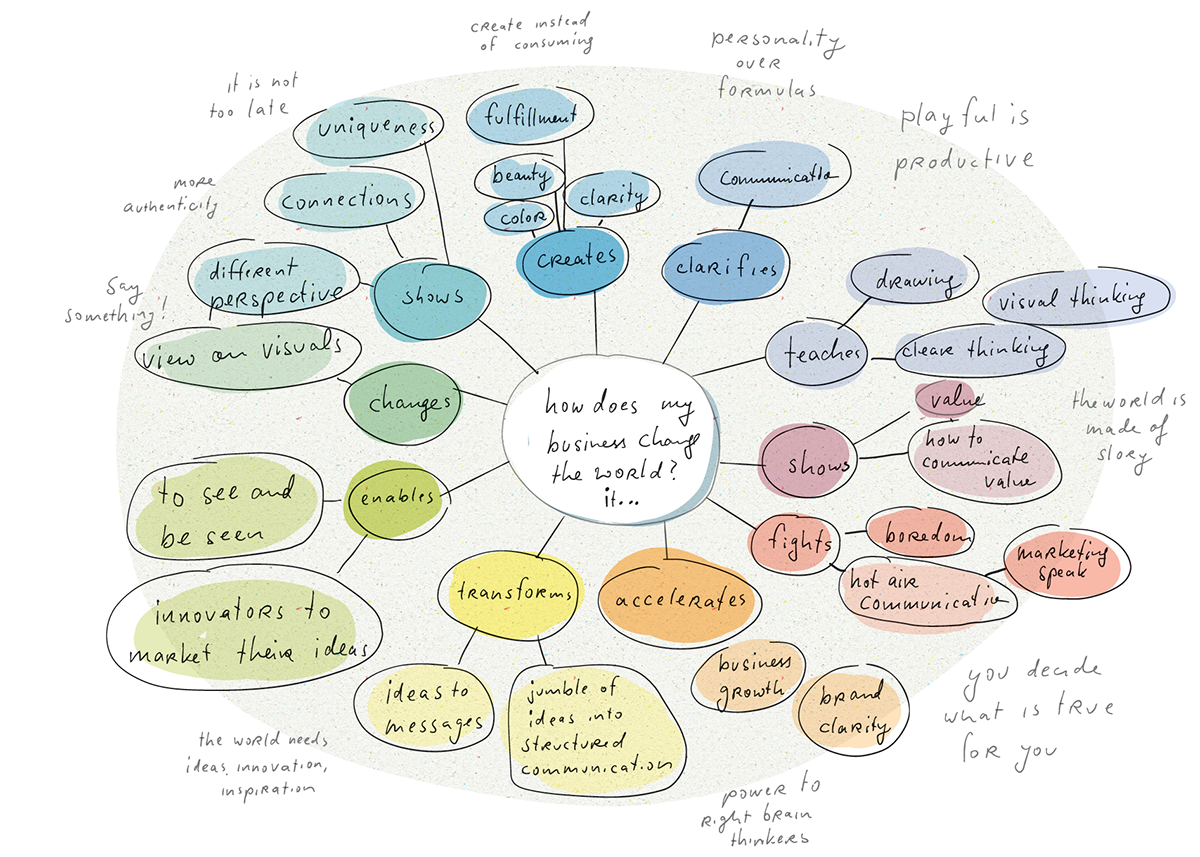 create instead
of consuming
personality
over
formulas
it is not
too late
playful is
productive
more
authenticity
Say
something!
the world is
made of
story
you decide
what is true
for you
power to
right brain
thinkers
the world needs
ideas, innovation,
inspiration
how does my
business change
the world?
it...
shows
uniqueness
connections
different
perspective
creates
fulfillment
beauty
color
clarity
clarifies
communication
teaches
drawing
clear thinking
visual thinking
shows
value
how to
communicate
value
fights
boredom
hot air
communication
marketing
speak
accelerates
business
growth
brand
clarity
transforms
ideas to
messages
jumble of
ideas into
structured
communication
enables
to see and
be seen
innovators to
market their ideas
changes
view on visuals